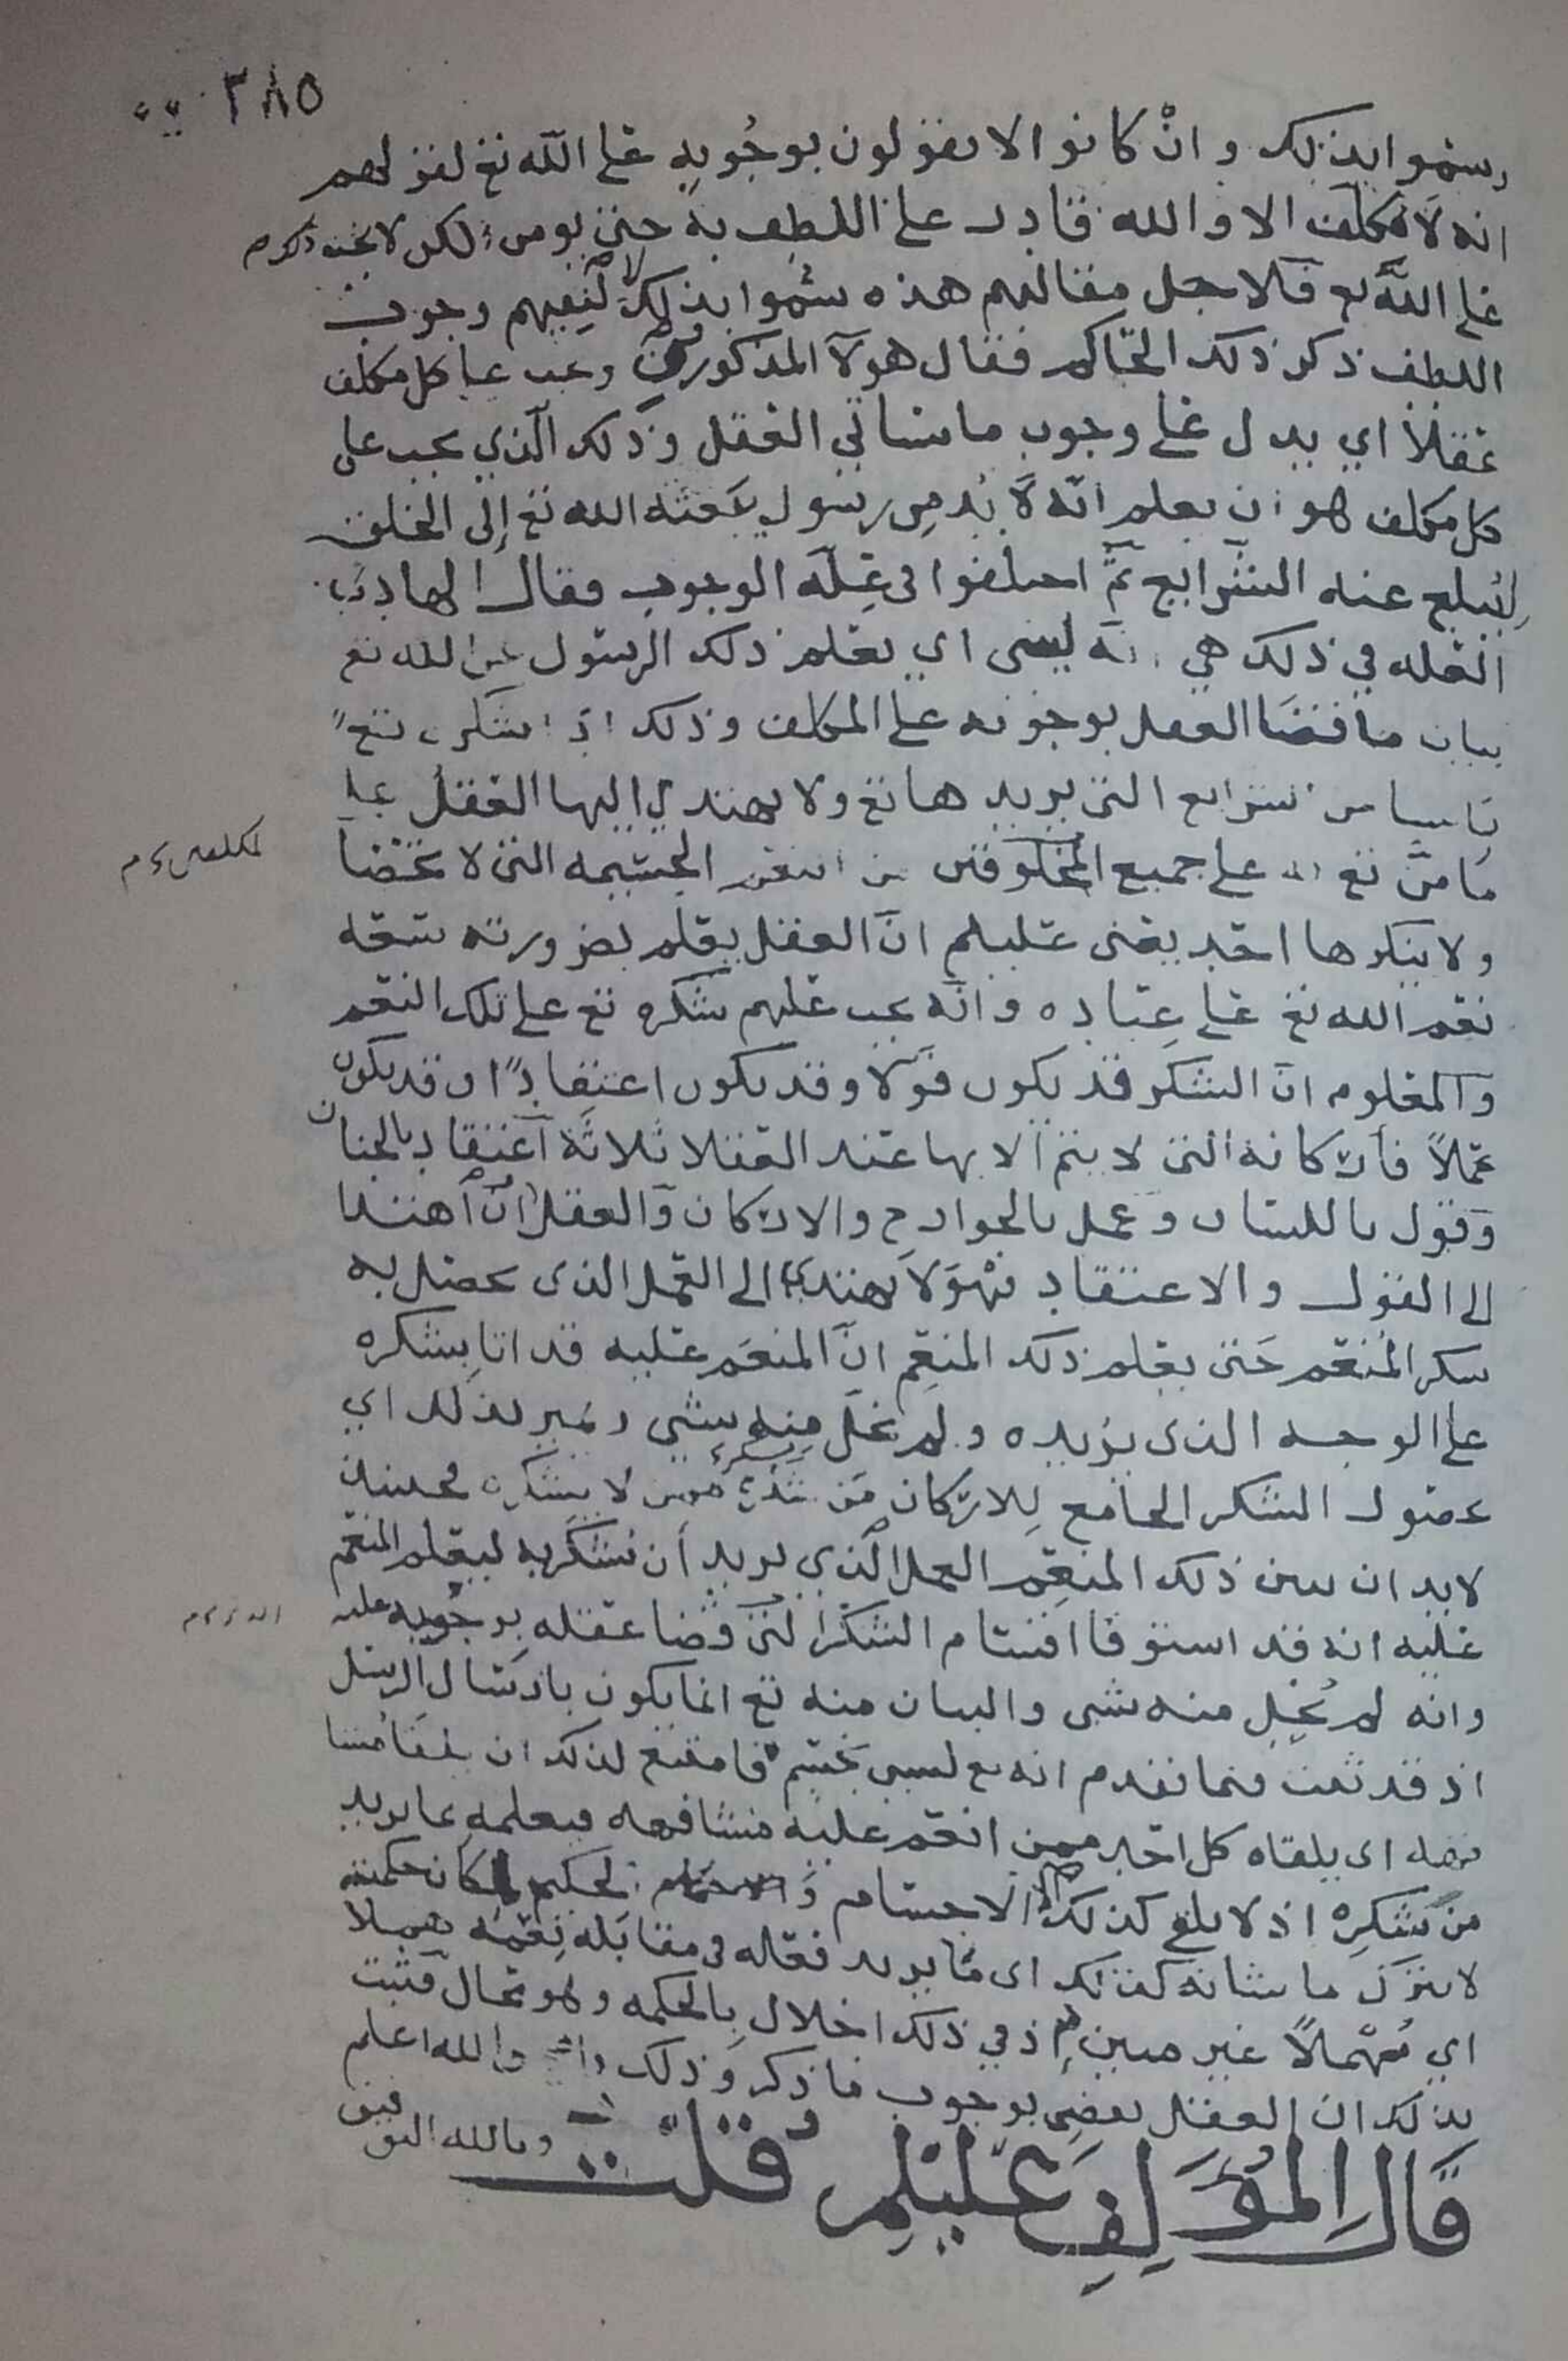 ٢٨٥
وسموا بذلك وانْ كانوا لا يقولون بوجُوبه على الله تع لقولهم
انه لا مكلف الا والله قادر على اللطف به حتى يومن لكن لا يجب
على الله تع فلاجل مقالتهم هذه سُموا بذلك لنفيهم وجوب
اللطف ذكر ذلك الحاكم فقال هولآ المذكورون وعب عبا كل مكلف
عقلاً اي يدل على وجوب ما سياتي العقل وذلك الذي يجب على
كل مكلف هو ان يعلم انه لا بُد مِن رسول يبعثه الله تع إلى الخلق
ليُبلغ عنه الشرايع ثمَّ اختلفوا في عِلّة الوجوب فقال الهادي
العله في ذلك هي انه اي يعلم ذلك الرسول عن الله تع
ببيان ما قضا العقل بوجوبه على المكلف وذلك اذ شكره تع
بما من الشرايع التي يريدها تع ولا يهتدي اليها العقل على
المكلفين
ما منَّ تع به على جميع المخلوقين من النعم الجسيمه التي لا تحصا
ولا ينكرها احد يعني عليلم انّ العقل يعلم بضرورته سعة
نعم الله تع على عِباده وانّه يجب عليهم شكره تع على تلك النعم
والمعلوم انّ الشكر قد يكون قولا وقد يكون اعتقادًا وقد يكون
عملاً فاركانه التي لا يتم الا بها عند العقلا ثلاثة اعتقاد بالجنان
وقول باللسان وعمل بالجوارح والاركان والعقل انْ اهتدا
الى القول والاعتقاد فهْوَ لا يهتدي الى العمل الذي يحصل به
شكر المُنعم حَتى يعلم ذلك المنعِم انّ المنعَم عليه قد اتا بشكره
على الوجه الذي يريده ولم يخل منه بشي ويُميز بذلك اي
بحصول الشكر الجامع لِلاركان مَن شكره ممن لا يشكره فحينئذ
لا بد ان يبين ذلك المنعِم العمل الذي يريد أن يُشكر به ليعلم المنعم
عليه انه قد استوفا اقسام الشكر التي قضا عقله بوجُوبه عليه
وانه لم يُخِل منه شي والبيان منه تع انما يكون بارسال الرسل
اذ قد ثبت فيما تقدم انه تع ليس بجسم فامتنع لذلك ان يلقا مُشا
فهه اى يلقاه كل احد ممن انعم عليه مشافهه فيعلمه بما يريد
من شكرِه اذ لا يلقى كذلك الا الاجسام والحكيم لمكان حكمته
لا يترك ما شانه كذلك اى مّا يريد فعله في مقابلة نِعَمِه هَمَلا
اي مُهْمَلاً غير مبين اذ في ذلك اخلال بِالحكمه وهو محال فثبت
بذلك ان العقل يقضي بوجوب ما ذكر وذلك واضح والله اعلم
وبالله التوفيق
قَالَ المُؤَلِفِ عَليْلِم قُلت